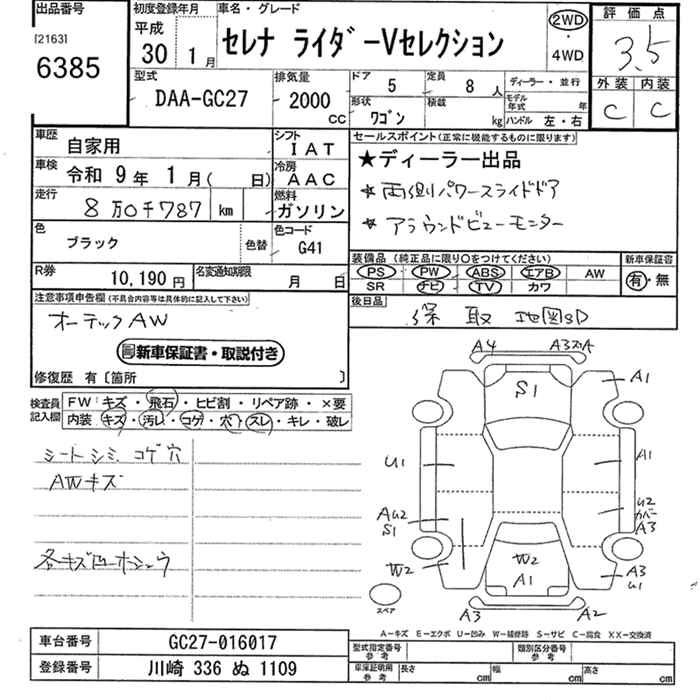 出品番号
[2163]
6385
初度登録年月
平成
30 1月
車名・グレード
セレナ ライダーVセレクション
2WD
4WD
評価点
3.5
外装 内装
C C
型式
DAA-GC27
排気量
2000 CC
ドア 5
定員 8人
形状 ワゴン
積載 kg
ディーラー・並行
モデル年式 年
ハンドル 左・右
車歴 自家用
シフト IAT
車検 令和9年1月( 日)
冷房 AAC
走行 8万0千787 km
燃料 ガソリン
色 ブラック 色替
色コード G41
R券 10,190円
名変通知期限 月 日
セールスポイント(正常に機能するものに限ります)
★ディーラー出品
★両側パワースライドドア
★アラウンドビューモニター
装備品(純正品に限り○をつけてください)
PS PW ABS エアB AW
SR ナビ TV カワ
新車保証書
有・無
後日品
保 取 地図SD
注意事項申告欄(不具合内容等は具体的に記入して下さい)
オーテックAW
新車保証書・取説付き
修復歴 有〔箇所 〕
検査員記入欄
FW:キズ・飛石・ヒビ割・リペア跡・×要
内装 キズ・汚レ・コゲ・穴・スレ・キレ・破レ
シートシミ、コゲ穴
AWキズ
A4
A1
S1
U1
A1
AU2
S1
U2
カバー
A3
W2
W2
A1
A3
U1
スペア
A3
A2
A−キズ E−エクボ U−凹み W−補修跡 S−サビ C−腐食 XX−交換済
車台番号 GC27-016017
登録番号 川崎 336 ぬ 1109
型式指定番号 参考
類別区分番号 参考
車庫証明用 参考
長さ cm 幅 cm 高さ cm